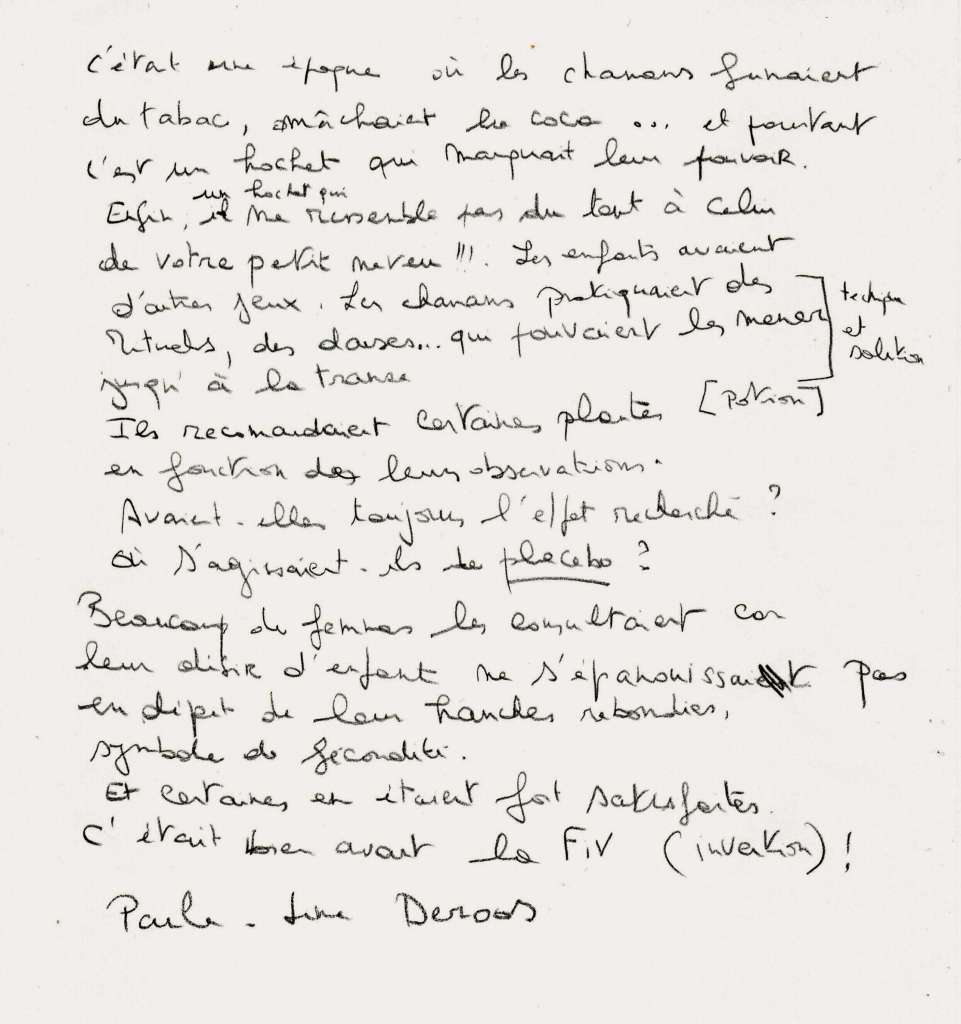 c'était une époque où les chamans fumaient
du tabac, mâchaient la coca ... et pourtant
c'est un hochet qui marquait leur pouvoir.
un hochet qui
Enfin, il ne ressemble pas du tout à celui
de votre petit neveu !!!. Les enfants avaient
d'autres jeux. Les chamans pratiquaient des
rituels, des danses... qui pouvaient les mener
jusqu'à la transe
et
solution
Ils recomandaient certaines plantes [potion]
en fonction de leurs observations.
Avaient-elles toujours l'effet recherché ?
Où s'agissaient-ils de placebo ?
Beaucoup de femmes les consultaient car
leur désir d'enfant ne s'épanouissait pas
en dépit de leur hanches rebondies,
symbole de fécondité.
Et certaines en étaient fort satisfaites.
C'était bien avant la FiV (invention) !
Paule - Deroos